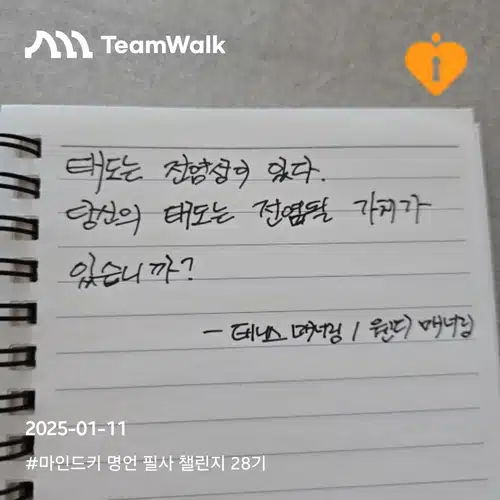 TeamWalk
태도는 전염성이 있다.
당신의 태도는 전염될 가치가
있습니까?
- 데니스 매너링 / 웬디 매너링
2025-01-11
#마인드키 명언 필사 챌린지 28기